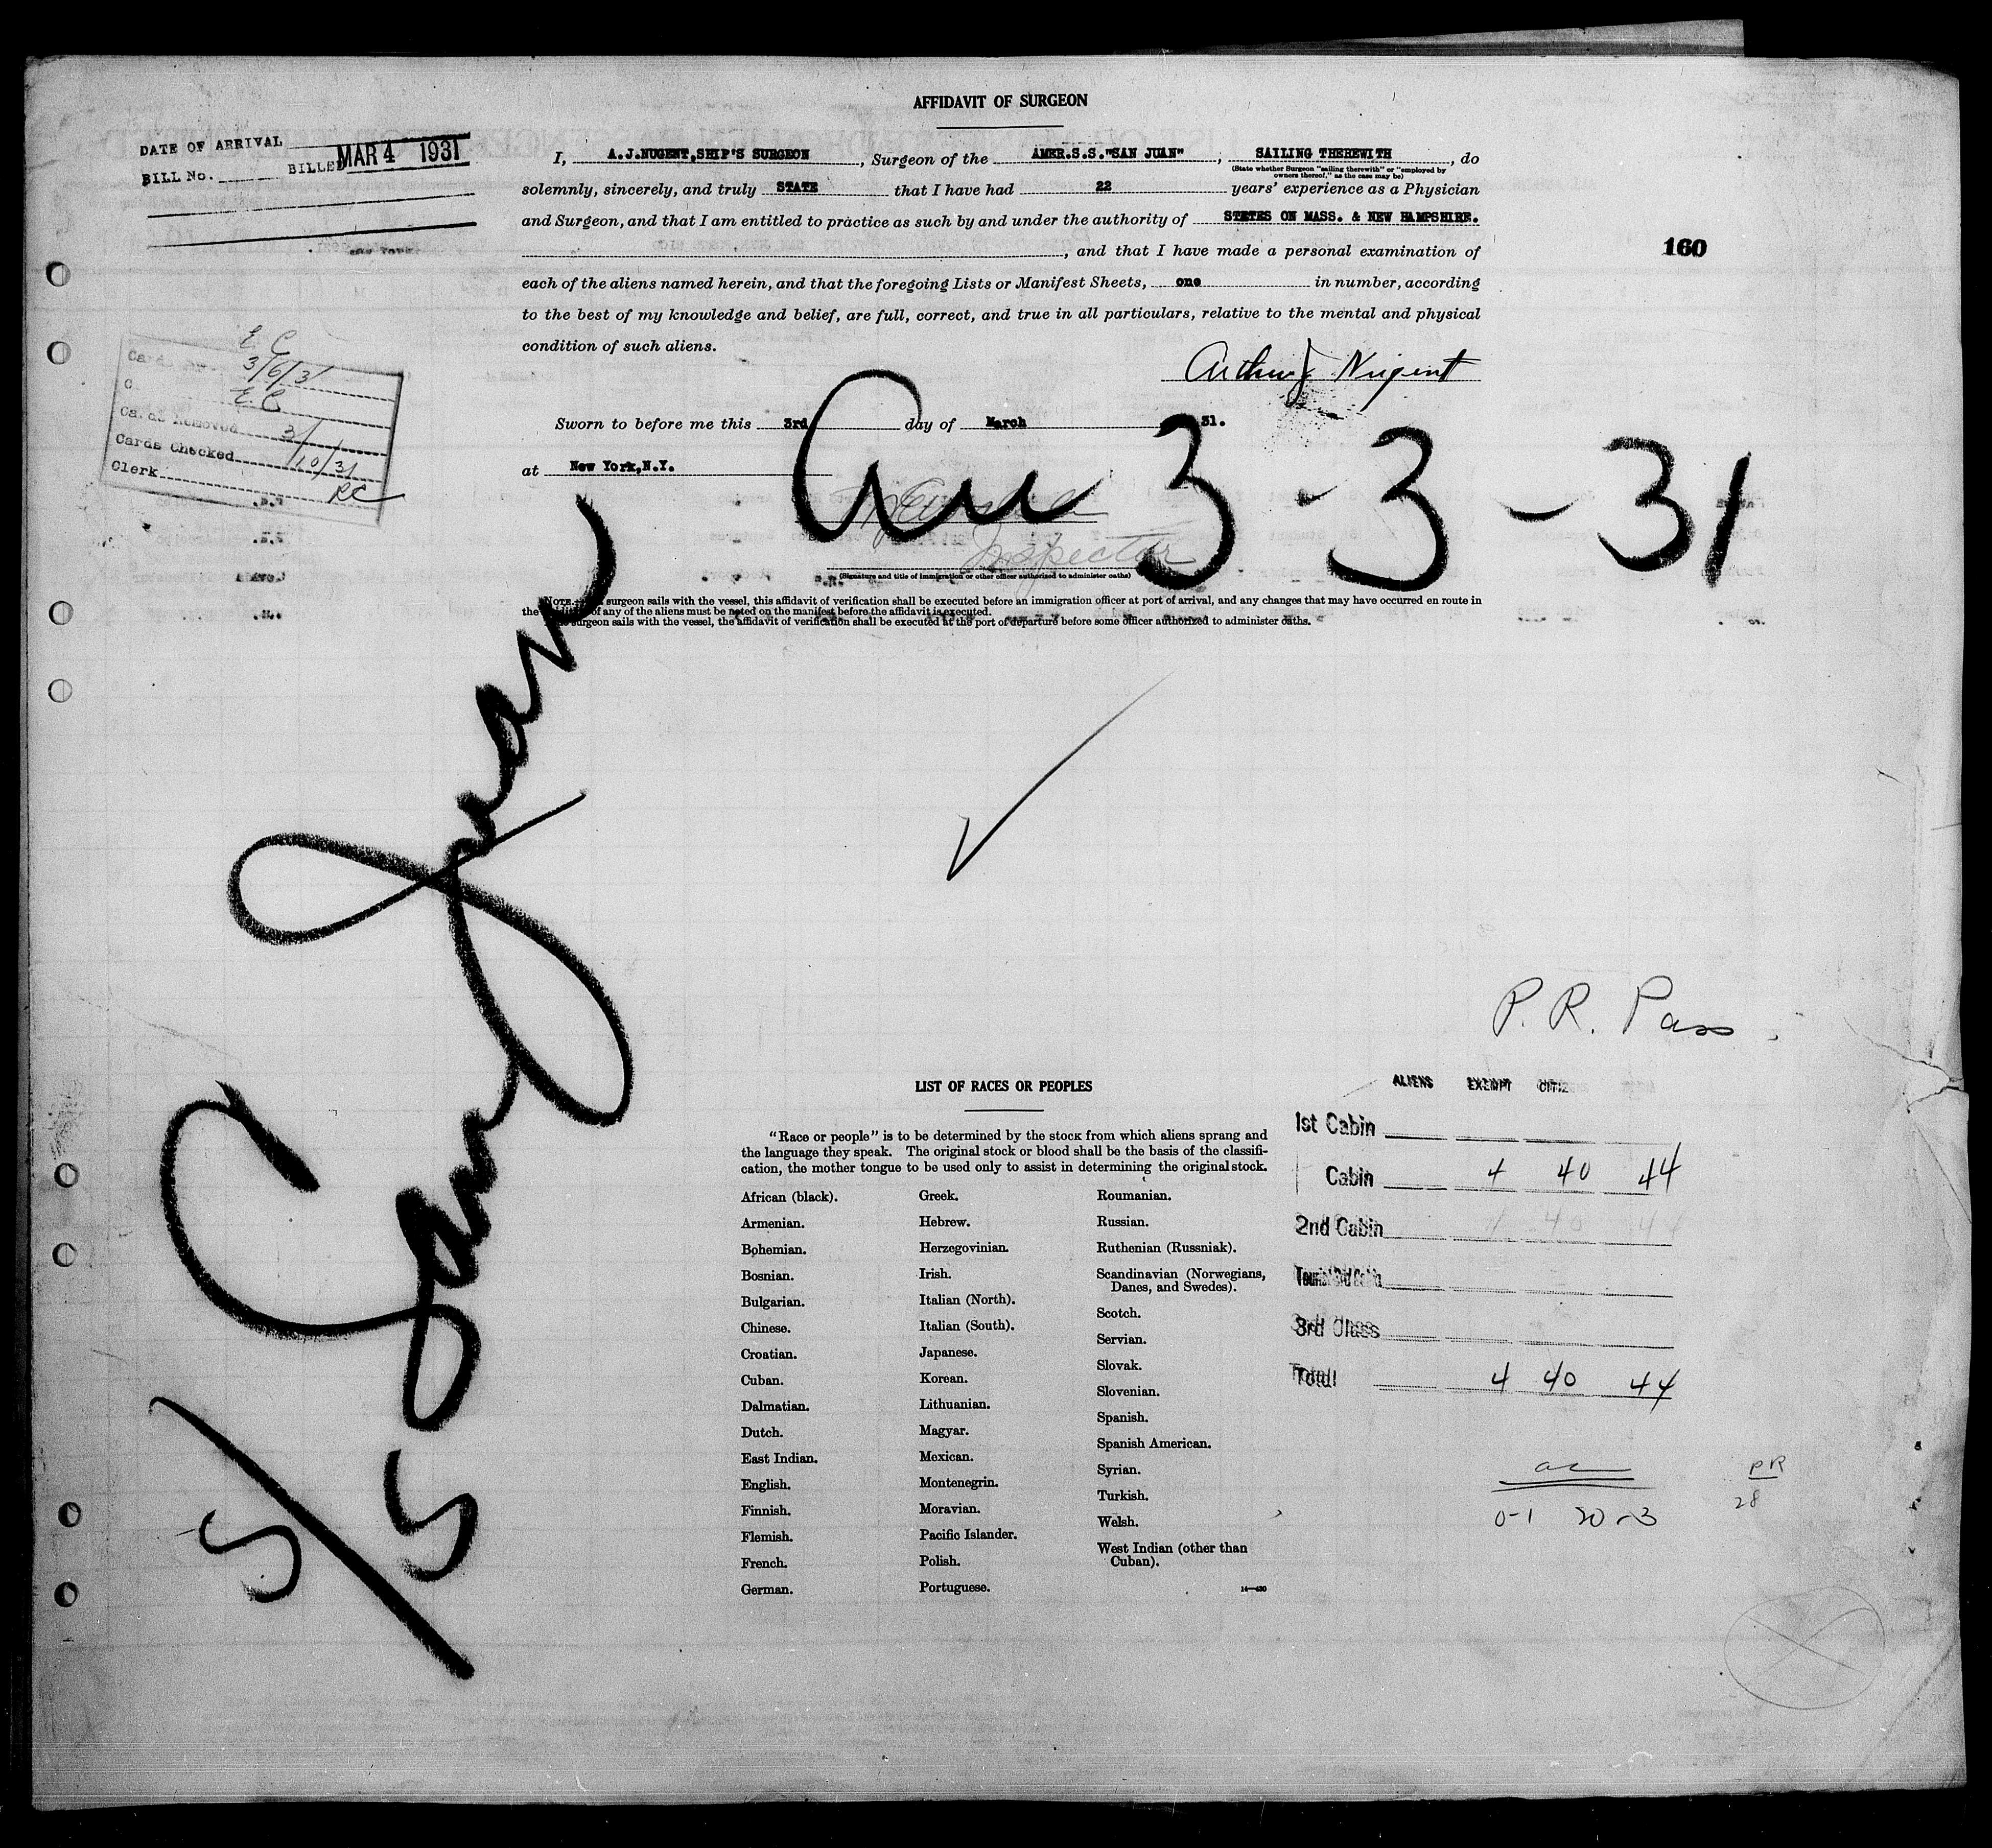 AFFIDAVIT OF SURGEON
DATE OF ARRIVAL
BILL No. BILLED MAR 4 1931
I, A.J.NUGENT,SHIP'S SURGEON, Surgeon of the AMER.S.S."SAN JUAN", SAILING THEREWITH, do
(State whether Surgeon "sailing therewith" or "employed by
owners thereof," as the case may be)
solemnly, sincerely, and truly STATE that I have had 22 years' experience as a Physician
and Surgeon, and that I am entitled to practice as such by and under the authority of STETES ON MASS. & NEW HAMPSHIRE.
, and that I have made a personal examination of
160
each of the aliens named herein, and that the foregoing Lists or Manifest Sheets, one in number, according
to the best of my knowledge and belief, are full, correct, and true in all particulars, relative to the mental and physical
condition of such aliens.
Arthur J Nugent
E. C.
3/6/31
E. C.
Cards Removed 3/
Cards Checked 10/31
Clerk RC
Sworn to before me this 3rd day of March 31.
at New York,N.Y.
3 - 3 - 31
Inspector
(Signature and title of immigration or other officer authorized to administer oaths)
NOTE.— surgeon sails with the vessel, this affidavit of verification shall be executed before an immigration officer at port of arrival, and any changes that may have occurred en route in
the condition of any of the aliens must be noted on the manifest before the affidavit is executed.
surgeon sails with the vessel, the affidavit of verification shall be executed at the port of departure before some officer authorized to administer oaths.
S/S San Juan
P. R. Pass
LIST OF RACES OR PEOPLES
"Race or people" is to be determined by the stock from which aliens sprang and
the language they speak. The original stock or blood shall be the basis of the classifi-
cation, the mother tongue to be used only to assist in determining the original stock.
African (black).
Armenian.
Bohemian.
Bosnian.
Bulgarian.
Chinese.
Croatian.
Cuban.
Dalmatian.
Dutch.
East Indian.
English.
Finnish.
Flemish.
French.
German.
Greek.
Hebrew.
Herzegovinian.
Irish.
Italian (North).
Italian (South).
Japanese.
Korean.
Lithuanian.
Magyar.
Mexican.
Montenegrin.
Moravian.
Pacific Islander.
Polish.
Portuguese.
Roumanian.
Russian.
Ruthenian (Russniak).
Scandinavian (Norwegians,
Danes, and Swedes).
Scotch.
Servian.
Slovak.
Slovenian.
Spanish.
Spanish American.
Syrian.
Turkish.
Welsh.
West Indian (other than
Cuban).
14—430
ALIENS EXEMPT CITIZ
1st Cabin
Cabin 4 40 44
2nd Cabin 4 40 44
3rd Class
Total 4 40 44
PR
28
0-1 20-3